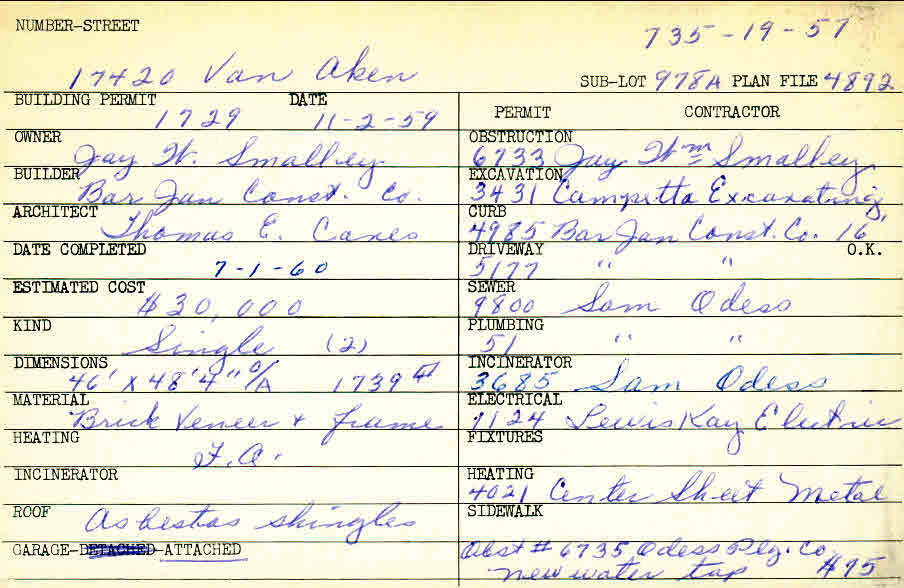 NUMBER-STREET
735-19-57
17420 Van Aken
SUB-LOT 978A PLAN FILE 4892
BUILDING PERMIT DATE
1729 11-2-59
OWNER
Jay W. Smalley
BUILDER
Bar Jan Const. Co.
ARCHITECT
Thomas E.
DATE COMPLETED
7-1-60
ESTIMATED COST
$30,000
KIND
Single (2)
DIMENSIONS
46' X 48'4" O/A 1739
MATERIAL
Brick Veneer + frame
HEATING
F.A.
INCINERATOR
ROOF
Asbestas shingles
GARAGE-DETACHED-ATTACHED
PERMIT CONTRACTOR
OBSTRUCTION
6733 Jay Wm Smalley
EXCAVATION
3431 Campetta Excavating
CURB
4985 Bar Jan Const. Co. 16'
DRIVEWAY O.K.
5177 " "
SEWER
9800 Sam Odess
PLUMBING
51 " "
INCINERATOR
3685 Sam Odess
ELECTRICAL
7124 Lewis Kay Electric
FIXTURES
HEATING
4021 Center Sheet Metal
SIDEWALK
Obst # 6735 Odess Plg. Co.
new water tap $95